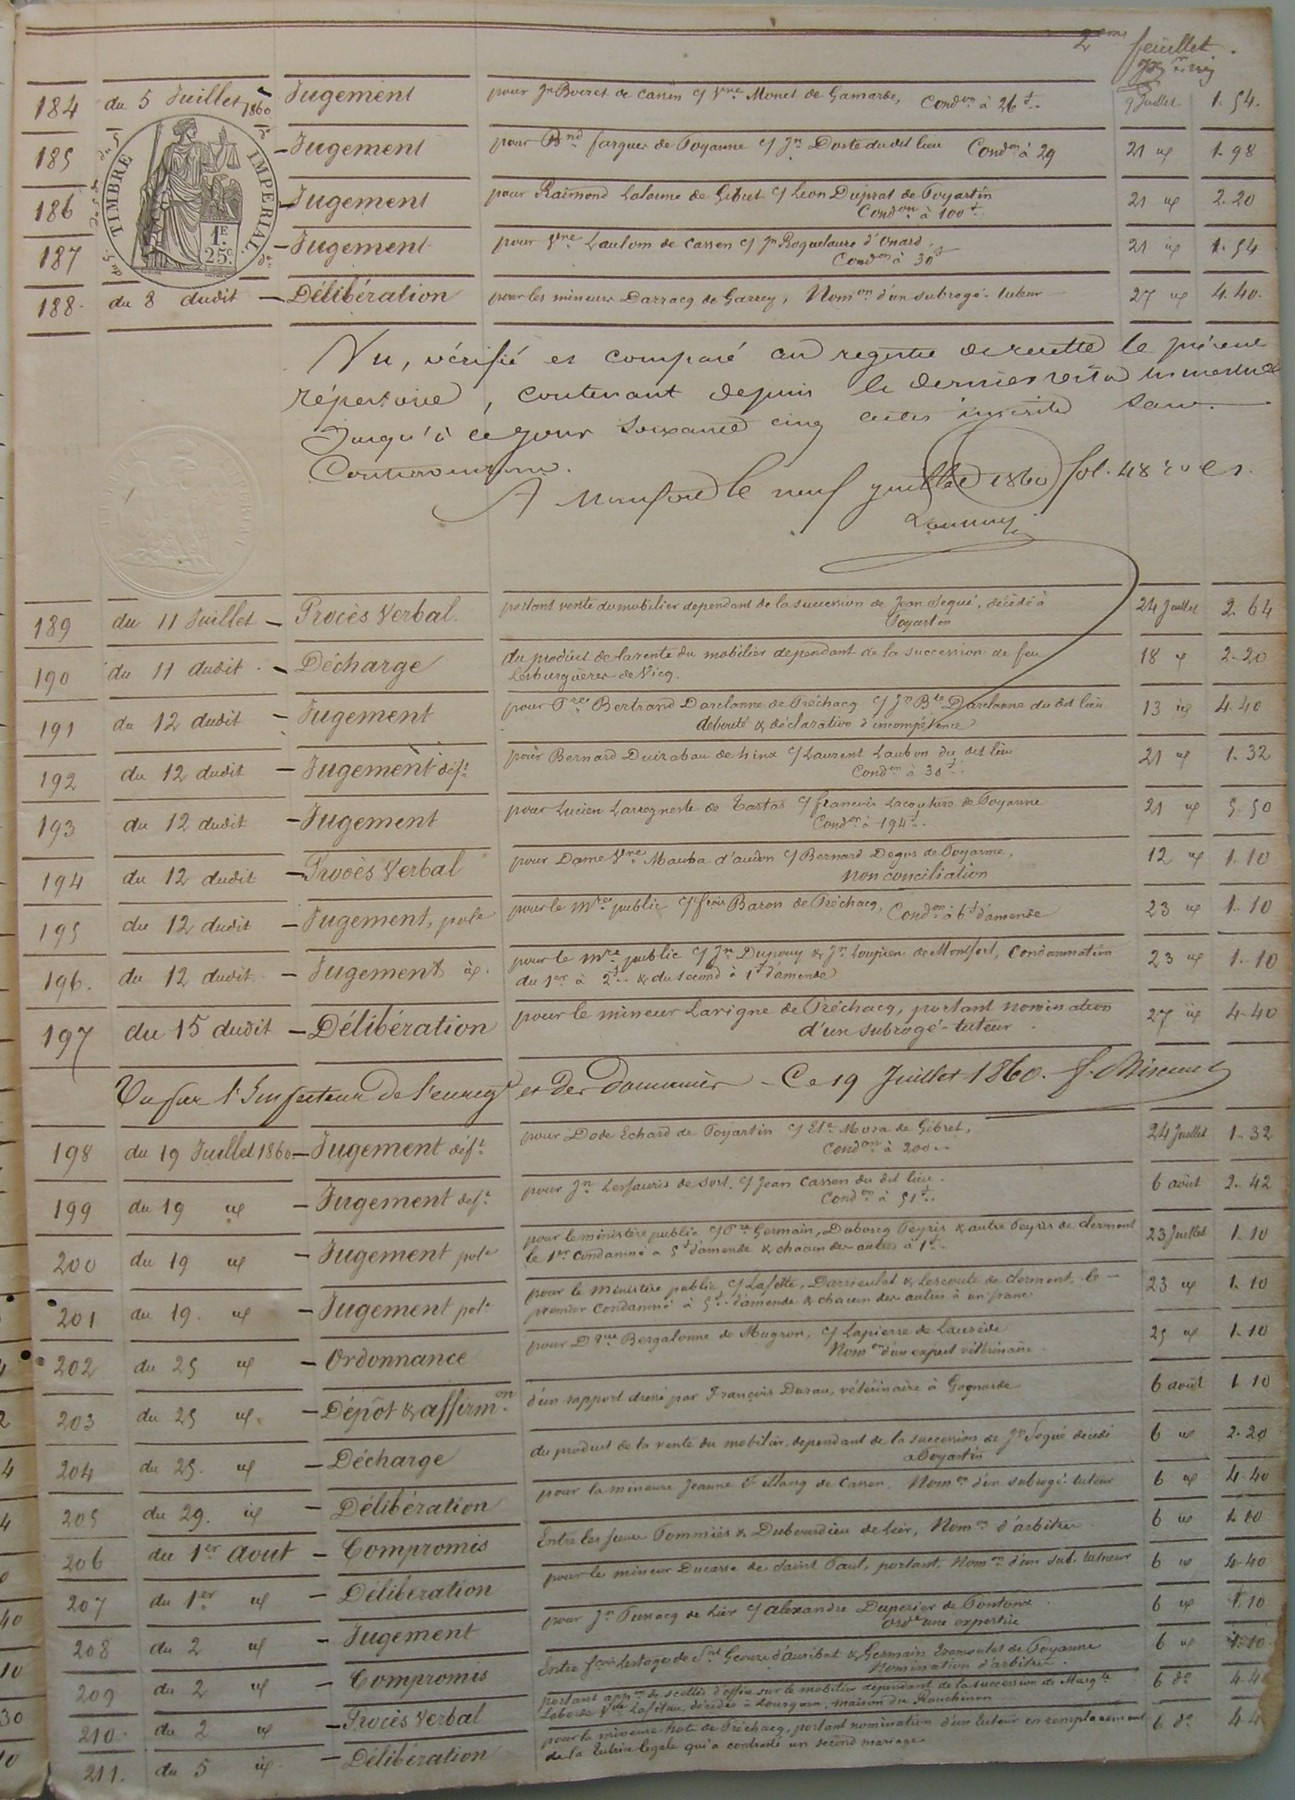 2eme feuillet.
184 du 5 Juillet 1860 Jugement pour Jn Boires de Cassen c/ Vve Monet de Gamarde, Condon à 26f.. 9 Juillet 1.54.
185 du 5 do Jugement pour Bnd fargues de Poyanne c/ Jn Doste du dit lieu Condon à 29 21 id 1.98
186 du 5 do Jugement pour Raimond Lalanne de Gibret c/ Léon Duprat de Poyartin
Condon à 100f.. 21 id 2.20
187 du 5 do Jugement pour Vve Laulom de Cassen c/ Jn Roquelaure d'Onard.
Condon à 30f 21 id 1.54
TIMBRE IMPERIAL.
1F. 25c.
188. du 8 dudit Délibération pour les mineurs Darracq de Garrey, Nomon d'un subrogé-tuteur 27 id 4.40.
Vu, vérifié et comparé au registre de recette le présent
répertoire, contenant depuis le dernier visa trimestriel
Jusqu'à ce jour soixante cinq actes inscrits sans
Contravention.
A Montfort le neuf juillet 1860 fol. 48
189 du 11 Juillet Procès Verbal. portant vente du mobilier dependant de la succession de Jean Sequé, décédé à
Poyartin 24 Juillet 2.64
190 du 11 dudit Décharge du produit de la vente du mobilier dependant de la succession de feu
Lesburguères de Vicq. 18 id 2.20
191 du 12 dudit Jugement pour Pre Bertrand Darclanne de Préchacq c/ Jn Bte Darclanne du dit lieu
debouté & déclaration d'incompétence 13 id 4.40
192 du 12 dudit Jugement déft pour Bernard Duirabau de hinx c/ Laurent Laubon du dit lieu
Condon à 30f.. 21 id 1.32
193 du 12 dudit Jugement pour Lucien Larregneste de Tartas c/ françois Lacouture de Poyanne
Condon à 194f.. 21 id 5.50
194 du 12 dudit Procès Verbal pour Dame Vve Mauba d'audon c/ Bernard Degos de Poyanne,
Non conciliation 12 id 1.10
195 du 12 dudit Jugement, pole pour le mre public c/ frois Baron de Préchacq, Condon à 6f d'amende 23 id 1.10
196. du 12 dudit Jugement id. pour le mre public c/ Jn Dupouy & Jn Loupien de Montfort, Condamnation
du 1er à 2f.. & du second à 1f d'amende 23 id 1.10
197 du 15 dudit Délibération pour le mineur Lavigne de Préchacq, portant nomination
d'un subrogé-tuteur. 27 id 4.40
Vu par l'Inspecteur de l'enregt et des Domaines - Ce 19 Juillet 1860.
198 du 19 Juillet 1860 Jugement déft pour Dode Echard de Poyartin c/ Ete Mora de Gibret,
Condon à 200.. 24 Juillet 1.32
199 du 19 id Jugement déft pour Jn Lesfauris de sort. c/ Jean Cassen du dit lieu.
Condon à 51f.. 6 août 2.42
200 du 19 id Jugement pole pour le ministère public c/ Pre Germain, Dubosq Peyris & autre Peyris de clermont
le 1er condamné à 5f d'amende & chacun des autres à 1f.. 23 Juillet 1.10
201 du 19. id Jugement pole pour le ministère public c/ Lafitte, Darrieulat & Lescoute de clermont, le
premier Condamné à 5f.. d'amende & chacun des autres à un franc 23 id 1.10
202 du 25 id Ordonnance pour Dque Bergalonne de Mugron, c/ Lapierre de Laurède
Nomon d'un expert vétérinaire. 25 id 1.10
203 du 25 id. Dépôt & affirmon d'un rapport dressé par François Darau, vétérinaire à Gamarde 6 août 1.10
204 du 25. id Décharge du produit de la vente du mobilier, dependant de la succession de Jn Sequé décédé
à Poyartin 6 id 2.20
205 du 29. id Délibération pour la mineure Jeanne de Cassen, Nomon d'un subrogé-tuteur 6 id 4.40
206 du 1er Aout Compromis Entre les sieurs Pommiès & Dubourdieu de Lier, Nomon d'arbitre 6 id 1.10
207 du 1er id Déliberation pour le mineur Ducasse de Saint Paul, portant, Nomon d'un sub. tuteur 6 id 4.40
208 du 2 id Jugement pour Jn Tussacq de Lier c/ alexandre Duperier de Pontonx
ordt une expertise 6 id 1.10
209 du 2 id Compromis Entre frois Lestage de Snt Geours d'auribat & Germain Tremoulet de Poyanne
Nomination d'arbitre. 6 id 1.10
210. du 2 id Procès Verbal portant appon de scellés d'office sur le mobilier dependant de la succession de Margte
Laborde Vve Lafitau, décédée à Lourquen, maison du Rouchinon 6 do 4.40
211. du 5 id Délibération pour la mineure hote de Préchacq, portant nomination d'un tuteur en remplacement
de la tutrice legale qui a contracté un second mariage. 6 do 4.4